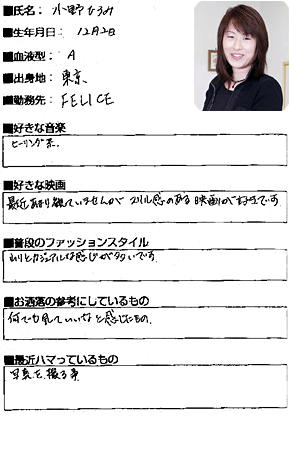 ■氏名： 小野なるみ
■生年月日： 12月2日
■血液型： A
■出身地： 東京
■勤務先： FELICE
■好きな音楽
ヒーリング系.
■好きな映画
最近あまり観ていませんが スリル感のある映画が好きです.
■普段のファッションスタイル
わりとカジュアルな感じが多いです.
■お洒落の参考にしているもの
何でも見ていいなと感じたもの.
■最近ハマっているもの
写真を撮る事